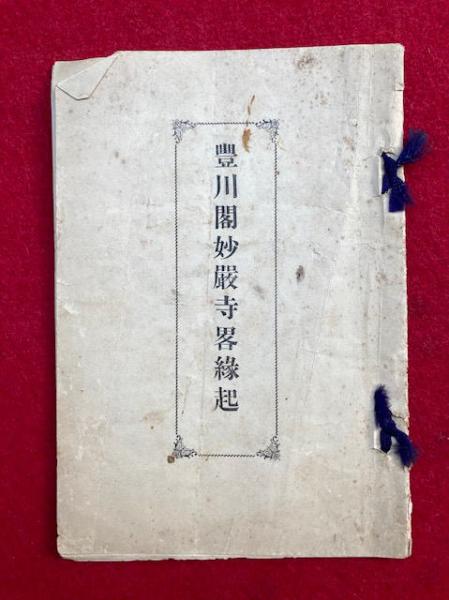 豐川閣妙嚴寺畧緣起